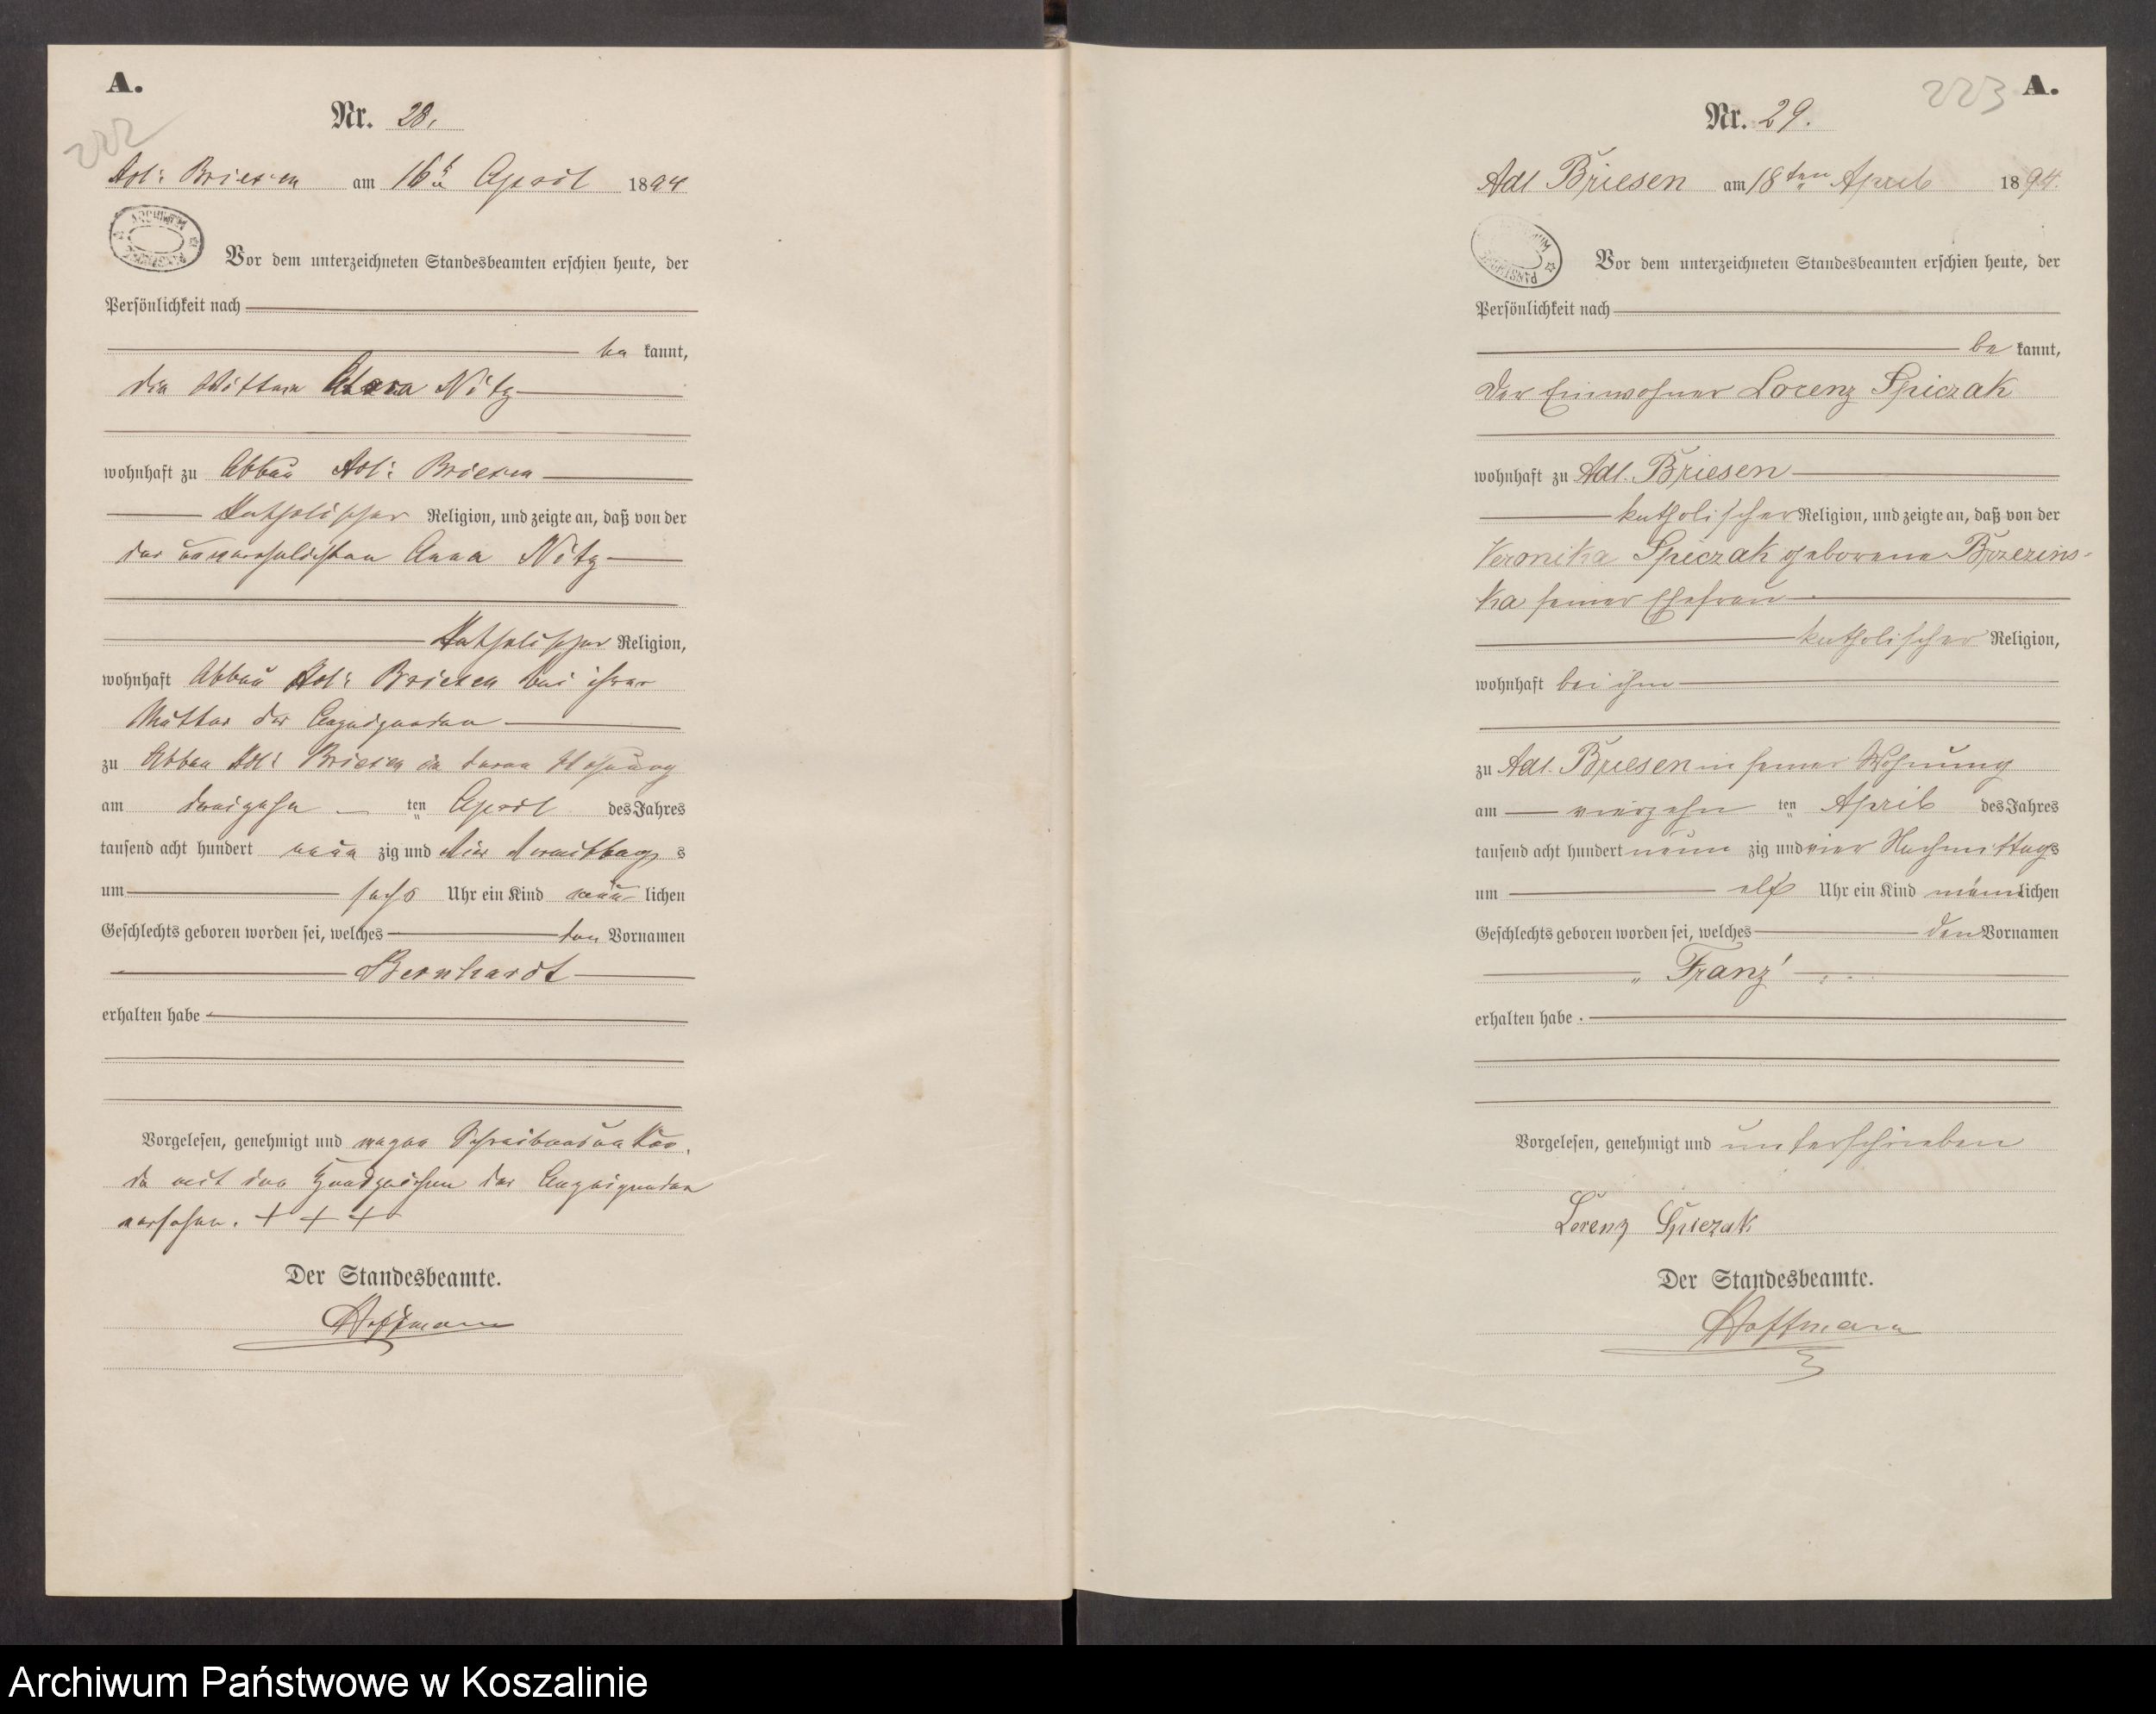 A.
222
Nr. 28.
Adl: Briesen am 16t April 1894
ARCHIWUM
PAŃSTWOWE
Vor dem unterzeichneten Standesbeamten erschien heute, der
Persönlichkeit nach
be kannt,
die Wittwe Nitz
wohnhaft zu Abbau Adl: Briesen
Katholischer Religion, und zeigte an, daß von der
der unverehelichten Anna Nitz
Katholischer Religion,
wohnhaft Abbau Adl: Briesen bei ihrer
Mutter der Anzeigenden
zu Abbau Adl: Briesen in deren Wohnung
am dreizehn ten April des Jahres
tausend acht hundert neun zig und vier Vormittag s
um sechs Uhr ein Kind män lichen
Geschlechts geboren worden sei, welches den Vornamen
Bernhardt
erhalten habe
Vorgelesen, genehmigt und wegen Schreibensunkun,
de mit den Handzeichen der Anzeigenden
versehen. + + +
Der Standesbeamte.
Hoffmann
223
A.
Nr. 29.
Adl Briesen am 18ten April 1894.
PAŃSTWOWE
Vor dem unterzeichneten Standesbeamten erschien heute, der
Persönlichkeit nach
be kannt,
der Einwohner Lorenz Spiczak
wohnhaft zu Adl. Briesen
katholischer Religion, und zeigte an, daß von der
Veronika Spiczak geborene Brzezins-
ka seiner Ehefrau
katholischer Religion,
wohnhaft bei ihm
zu Adl. Briesen in seiner Wohnung
am vierzehn ten April des Jahres
tausend acht hundert neun zig und vier Nachmittags
um elf Uhr ein Kind männlichen
Geschlechts geboren worden sei, welches den Vornamen
„Franz"
erhalten habe.
Vorgelesen, genehmigt und unterschrieben
Lorenz Spiczak
Der Standesbeamte.
Hoffmann
Archiwum Państwowe w Koszalinie